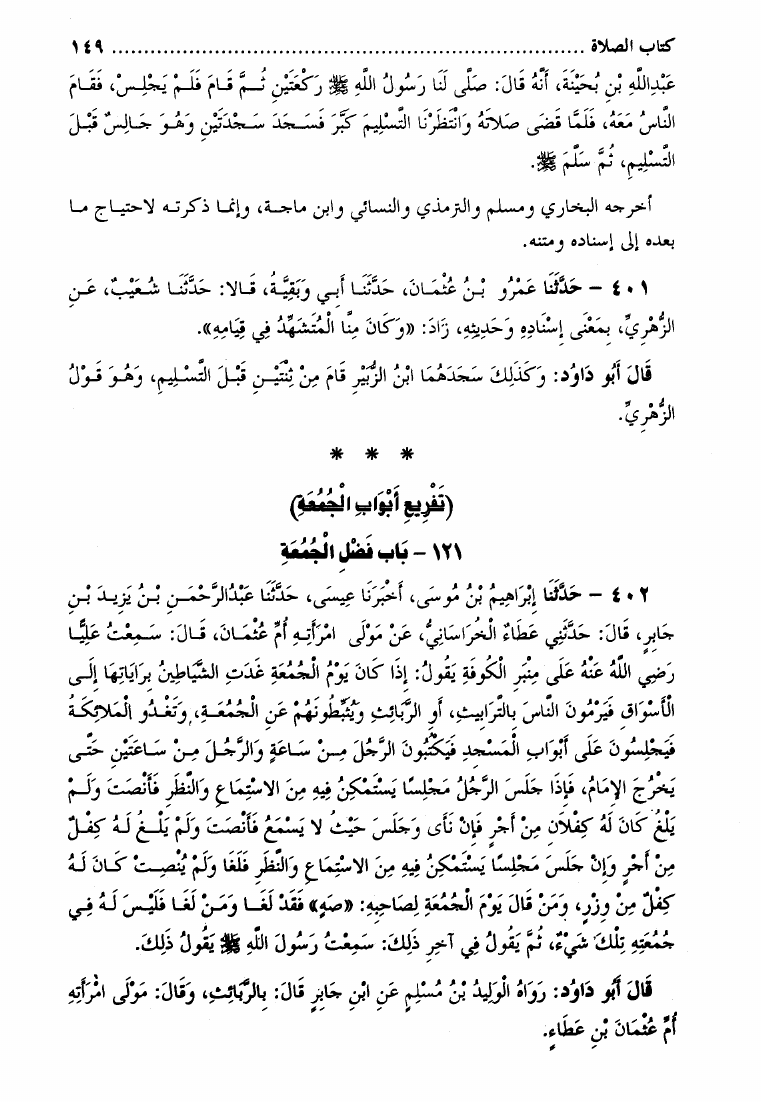 كتاب الصلاة ........................................................................ ١٤٩
عَبْدِاللَّهِ بْنِ بُحَيْنَةَ، أَنَّهُ قَالَ: صَلَّى لَنَا رَسُولُ اللَّهِ ﷺ رَكْعَتَيْنِ ثُمَّ قَامَ فَلَمْ يَجْلِسْ، فَقَامَ
النَّاسُ مَعَهُ، فَلَمَّا قَضَى صَلَاتَهُ وَانْتَظَرْنَا التَّسْلِيمَ كَبَّرَ فَسَجَدَ سَجْدَتَيْنِ وَهُوَ جَالِسٌ قَبْلَ
التَّسْلِيمِ، ثُمَّ سَلَّمَ ﷺ.
أخرجه البخاري ومسلم والترمذي والنسائي وابن ماجة، وإنما ذكرته لاحتياج ما
بعده إلى إسناده ومتنه.
٤٠١ - حَدَّثَنَا عَمْرُو بْنُ عُثْمَانَ، حَدَّثَنَا أَبِي وَبَقِيَّةُ، قَالا: حَدَّثَنَا شُعَيْبٌ، عَنِ
الزُّهْرِيِّ، بِمَعْنَى إِسْنَادِهِ وَحَدِيثِهِ، زَادَ: «وَكَانَ مِنَّا الْمُتَشَهِّدُ فِي قِيَامِهِ».
قَالَ أَبُو دَاوُد: وَكَذَلِكَ سَجَدَهُمَا ابْنُ الزُّبَيْرِ قَامَ مِنْ ثِنْتَيْنِ قَبْلَ التَّسْلِيمِ، وَهُوَ قَوْلُ
الزُّهْرِيِّ.
* * *
(تَفْرِيعِ أَبْوَابِ الْجُمُعَةِ)
١٢١ - بَاب فَضْلِ الْجُمُعَةِ
٤٠٢ - حَدَّثَنَا إِبْرَاهِيمُ بْنُ مُوسَى، أَخْبَرَنَا عِيسَى، حَدَّثَنَا عَبْدُالرَّحْمَنِ بْنُ يَزِيدَ بْنِ
جَابِرٍ، قَالَ: حَدَّثَنِي عَطَاءٌ الْخُرَاسَانِيُّ، عَنْ مَوْلَى امْرَأَتِهِ أُمِّ عُثْمَانَ، قَالَ: سَمِعْتُ عَلِيًّا
رَضِي اللَّهُ عَنْهُ عَلَى مِنْبَرِ الْكُوفَةِ يَقُولُ: إِذَا كَانَ يَوْمُ الْجُمُعَةِ غَدَتِ الشَّيَاطِينُ بِرَايَاتِهَا إِلَى
الْأَسْوَاقِ فَيَرْمُونَ النَّاسَ بِالتَّرَابِيثِ، أَوِ الرَّبَائِثِ وَيُثَبِّطُونَهُمْ عَنِ الْجُمُعَةِ، وَتَغْدُو الْمَلَائِكَةُ
فَيَجْلِسُونَ عَلَى أَبْوَابِ الْمَسْجِدِ فَيَكْتُبُونَ الرَّجُلَ مِنْ سَاعَةٍ وَالرَّجُلَ مِنْ سَاعَتَيْنِ حَتَّى
يَخْرُجَ الإِمَامُ، فَإِذَا جَلَسَ الرَّجُلُ مَجْلِسًا يَسْتَمْكِنُ فِيهِ مِنَ الاسْتِمَاعِ وَالنَّظَرِ فَأَنْصَتَ وَلَمْ
يَلْغُ كَانَ لَهُ كِفْلَانِ مِنْ أَجْرٍ فَإِنْ نَأَى وَجَلَسَ حَيْثُ لا يَسْمَعُ فَأَنْصَتَ وَلَمْ يَلْغُ لَهُ كِفْلٌ
مِنْ أَجْرٍ وَإِنْ جَلَسَ مَجْلِسًا يَسْتَمْكِنُ فِيهِ مِنَ الاسْتِمَاعِ وَالنَّظَرِ فَلَغَا وَلَمْ يُنْصِتْ كَانَ لَهُ
كِفْلٌ مِنْ وِزْرٍ، وَمَنْ قَالَ يَوْمَ الْجُمُعَةِ لِصَاحِبِهِ: «صَهٍ» فَقَدْ لَغَا وَمَنْ لَغَا فَلَيْسَ لَهُ فِي
جُمُعَتِهِ تِلْكَ شَيْءٌ، ثُمَّ يَقُولُ فِي آخِرِ ذَلِكَ: سَمِعْتُ رَسُولَ اللَّهِ ﷺ يَقُولُ ذَلِكَ.
قَالَ أَبُو دَاوُد: رَوَاهُ الْوَلِيدُ بْنُ مُسْلِمٍ عَنِ ابْنِ جَابِرٍ قَالَ: بِالرَّبَائِثِ، وَقَالَ: مَوْلَى امْرَأَتِهِ
أُمِّ عُثْمَانَ بْنِ عَطَاءٍ.